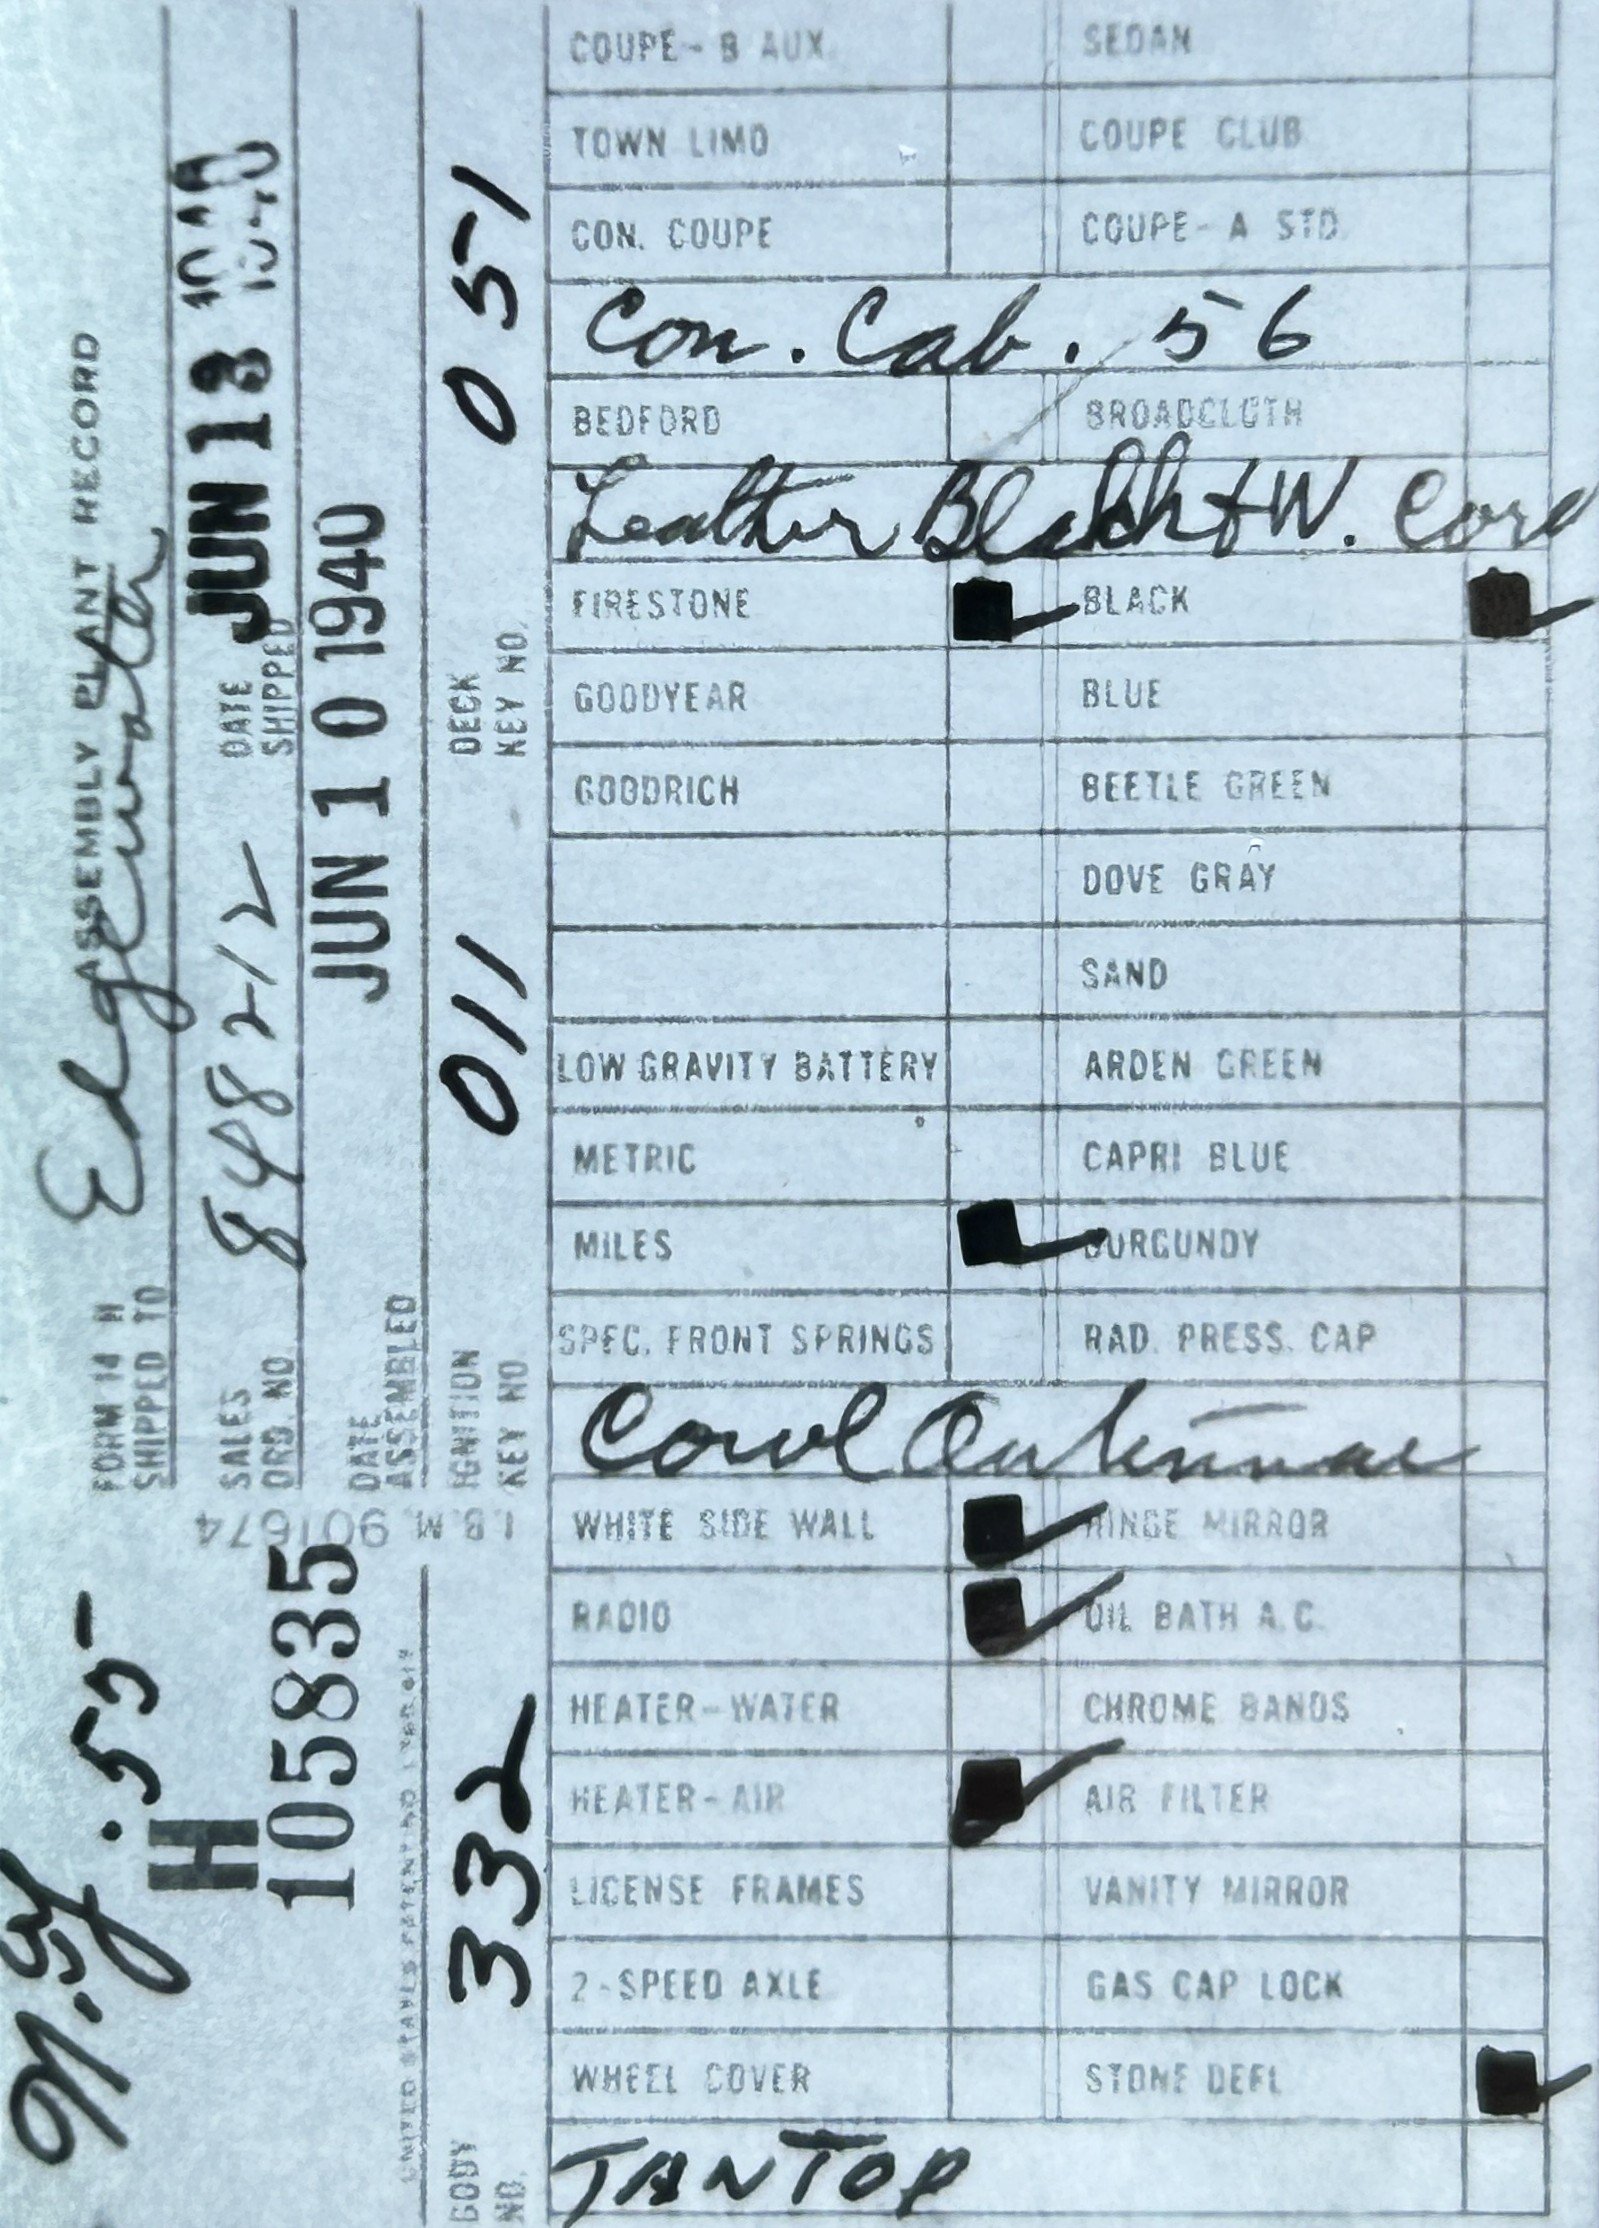 ASSEMBLY PLANT RECORD
FORM 14 H
SHIPPED TO Edgewater
SALES ORD. NO. 848212
DATE SHIPPED JUN 13 1940
DATE ASSEMBLED JUN 10 1940
IGNITION KEY NO 011
DECK KEY NO. 051
I.B.M. 901674
N.Y. .55
H
105835
BODY NO. 332
COUPE - B AUX. SEDAN
TOWN LIMO COUPE CLUB
CON. COUPE COUPE - A STD.
Con. Cab. 56
BEDFORD BROADCLOTH
Leather W. Cord
FIRESTONE BLACK
GOODYEAR BLUE
GOODRICH BEETLE GREEN
DOVE GRAY
SAND
LOW GRAVITY BATTERY ARDEN GREEN
METRIC CAPRI BLUE
MILES BURGUNDY
SPEC. FRONT SPRINGS RAD. PRESS. CAP
Cowl Antennae
WHITE SIDE WALL HINGE MIRROR
RADIO OIL BATH A.C.
HEATER-WATER CHROME BANDS
HEATER-AIR AIR FILTER
LICENSE FRAMES VANITY MIRROR
2-SPEED AXLE GAS CAP LOCK
WHEEL COVER STONE DEFL
TAN TOP